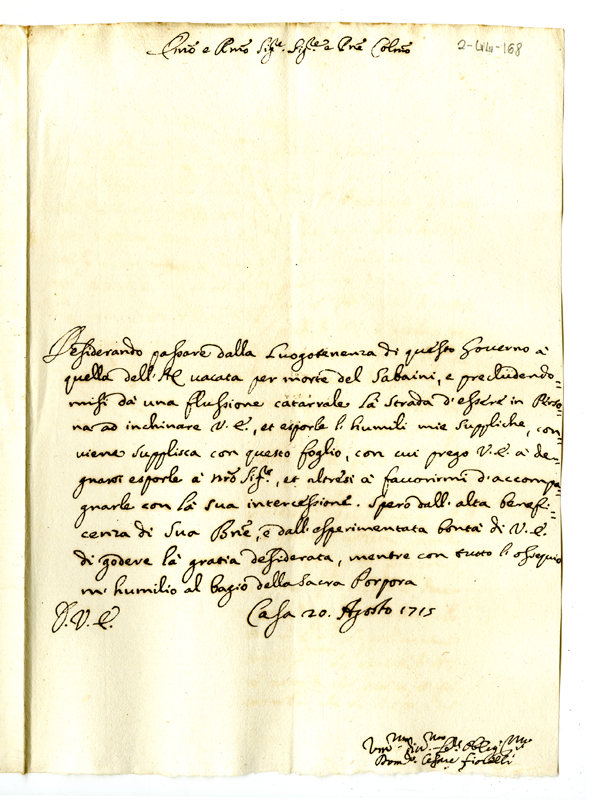 Emo e Rmo Sigre. Sigre e Pne Colmo 2-LVIII-168
Desiderando passare dalla Luogotenenza di questo Governo à
quella dell'AC vacata per morte del Sabaini, e precludendo=
misi da una flussione catarrale la strada d'essere in Perso=
na ad inchinare V.E., et esporle l'humili mie suppliche, con=
viene supplisca con questo foglio, con cui prego V.E. à de=
gnarsi esporle à nro Sigre, et altresi à favorirmi d'accompa=
gnarle con la sua intercessione. Spero dall'alta benefi=
cenza di Sua Bne, e dall'esperimentata bontà di V.E.
di godere la gratia desiderata, mentre con tutto l'ossequio
m'humilio al bagio della Sacra Porpora
D.V.E. Casa 20. Agosto 1715
Vmo Oblig
Cesare